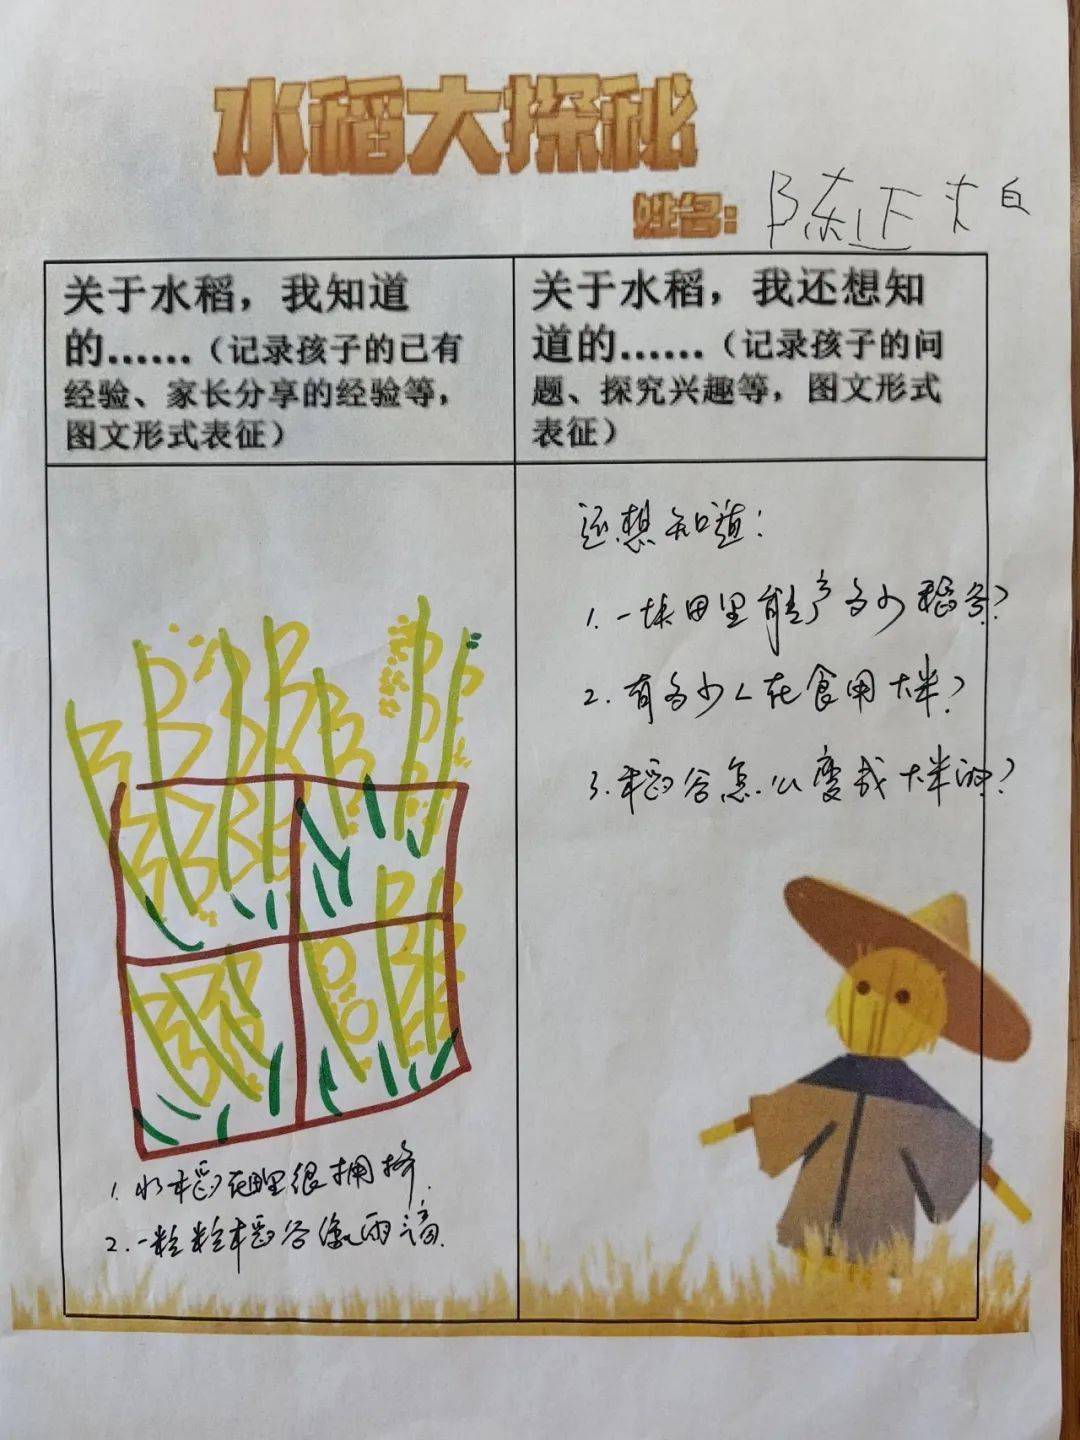 水稻大探秘
姓名：陈正
关于水稻，我知道
的……（记录孩子的已有
经验、家长分享的经验等，
图文形式表征）
关于水稻，我还想知
道的……（记录孩子的问
题、探究兴趣等，图文形式
表征）
1. 水稻在田里很拥挤.
2. 一粒粒稻谷像雨滴.
还想知道：
1. 一块田里能产多少稻谷?
2. 有多少人在食用大米?
3. 稻谷怎么变成大米的?